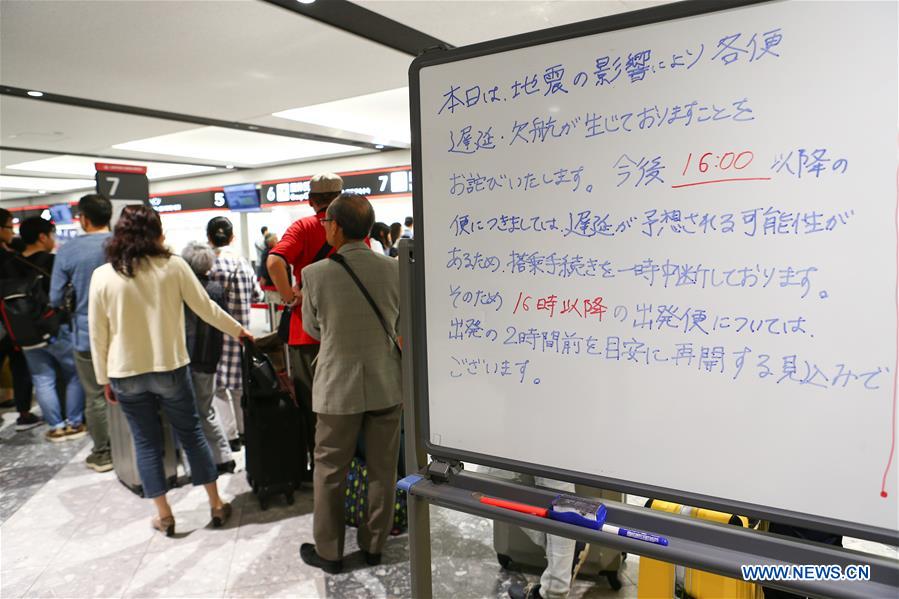 本日は、地震の影響により各便
遅延・欠航が生じておりますことを
お詫びいたします。今後 16:00 以降の
便につきましては、遅延が予想される可能性が
あるため、搭乗手続きを一時中断しております。
そのため 16時以降の出発便については、
出発の2時間前を目安に再開する見込みで
ございます。
7
5
6
7
WWW.NEWS.CN